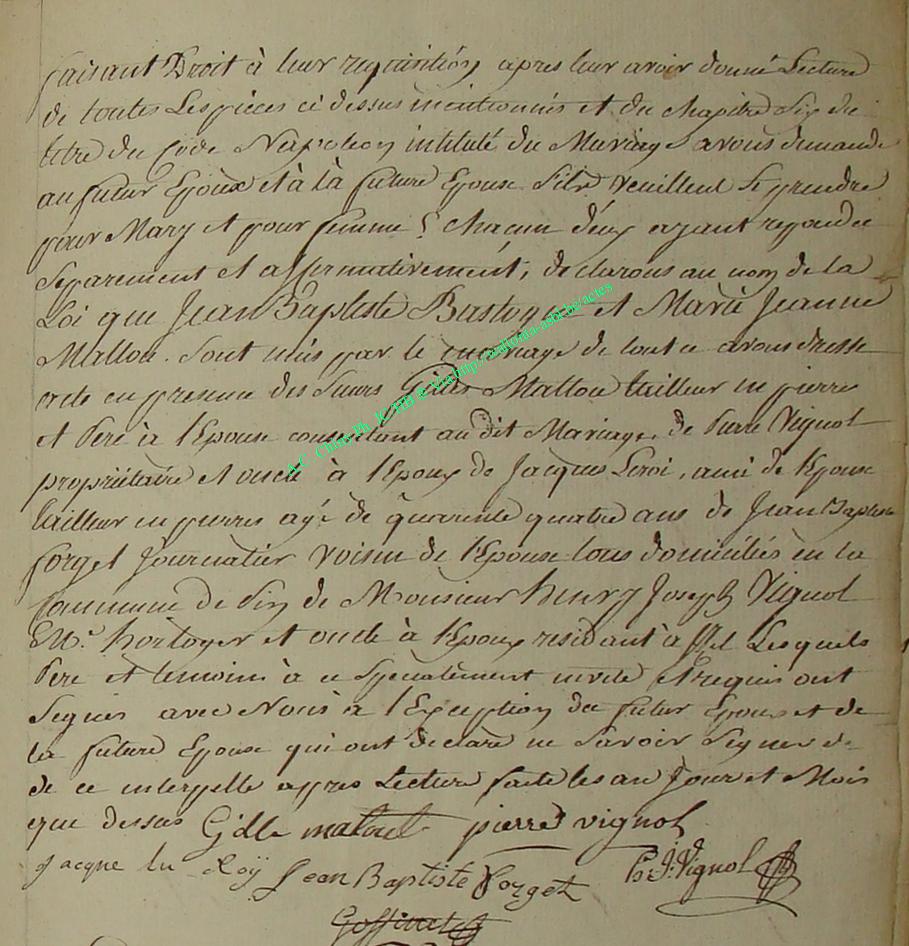 faisant Droit à leur requisition apres leur avoir donné Lecture
de toutes Les pièces ci dessus mentionnés et du chapitre Six du
titre du Code Napoleon intitulé du Mariage avons demandé
au futur Epoux et à la future Epouse Sils veuillent Se prendre
pour Mary et pour femme ; chacun d'eux ayant repondu
Separement et affirmativement, declarons au nom de la
Loi que Jean Baptiste Bastogne et Marie Jeanne
Mallou. Sont unis par le mariage de tout ce avons dressé
acte en presence des Sieurs Gilles Mallou tailleur en pierres
et Pere à l'Epouse consentant au dit Mariage, de Pierre Vignol
propriétaire et oncle à l'Epoux de Jacques Leroi, ami de l'Epouse
tailleur en pierres agé de quarente quatre ans de Jean Baptiste
forget Journatier voisin de l'Epouse tous domiciliés en la
Commune de de Monsieur henry Joseph Vignol
M.e horloger et oncle à l'Epoux residant à Lesquels
Pere et temoins à ce Spécialement invité et requis ont
Signés avec Nous à l'Exception du futur Epoux et de
la future Epouse qui ont declaré ne Savoir Signer de
de ce interpellé appres Lecture faite les an Jour et Mois
que dessus Gille malout pierre vignol
Jacque lu Roÿ Jean Baptiste Forget h. J. Vignol
Goffinet
A.C. Chiny Ph. JCHB & Via http://